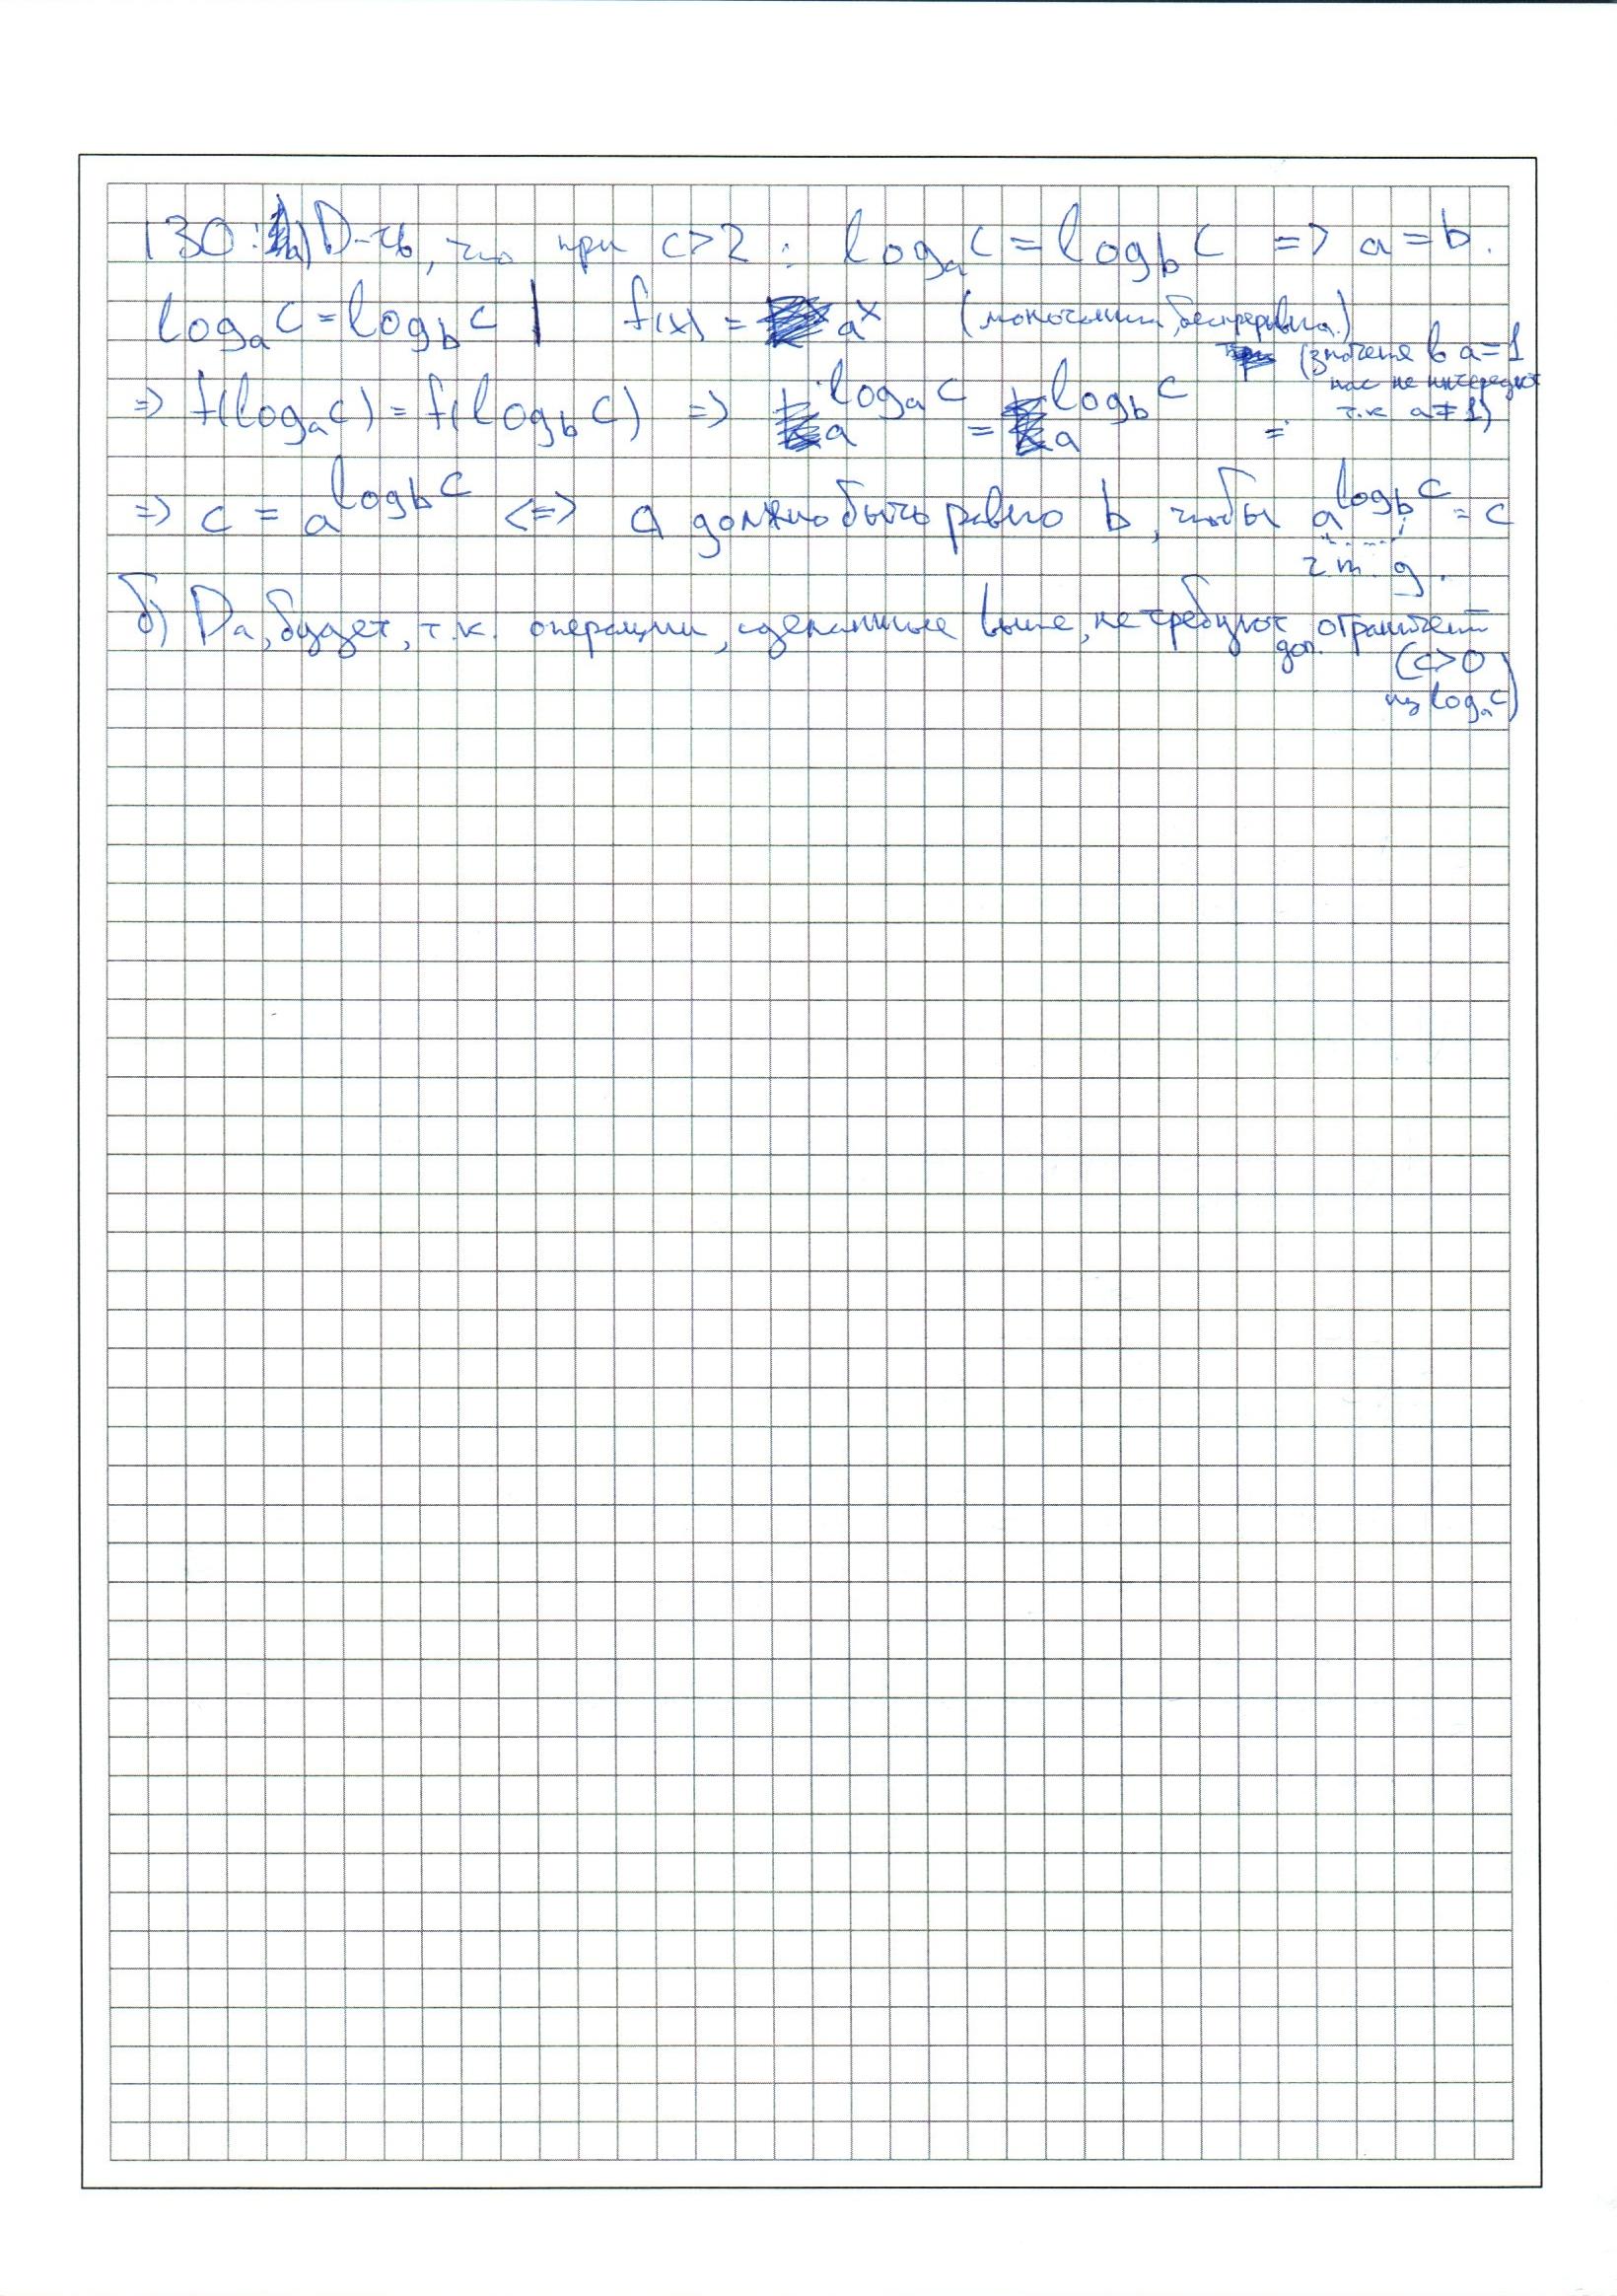 130: а) D-ть, что при c>2 : logₐc = log_b c => a = b.
logₐc = log_b c | f(x) = aˣ (монотонна, беспрерывна.)
(значение в a=1
нас не интересует
т.к a ≠ 1)
=> f(logₐc) = f(log_b c) => a^(logₐc) = a^(log_b c) =
=> c = a^(log_b c) <=> a должно быть равно b, чтобы a^(log_b c) = c
ч.т.д.
б) Да, будет, т.к. операции, сделанные выше, не требуют доп. ограничений
(c>0
из logₐc)